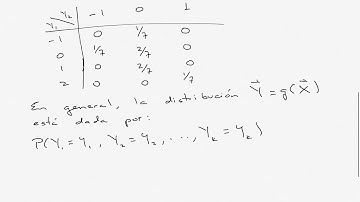 Y₁ \ Y₂ -1 0 1
-1 0 1/7 0
0 1/7 2/7 0
1 0 2/7 0
2 0 0 1/7
En general, la distribución Y⃗ = g(X⃗)
está dada por:
P(Y₁ = y₁, Y₂ = y₂, ..., Yₖ = yₖ)